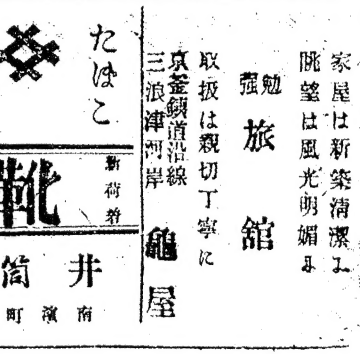 家屋は新築清潔に
眺望は風光明媚に
勉强
旅舘
取扱は親切丁寧に
京釜鐵道沿線
三浪津河岸
龜屋
たばこ
新荷着
靴
井筒
南濱町